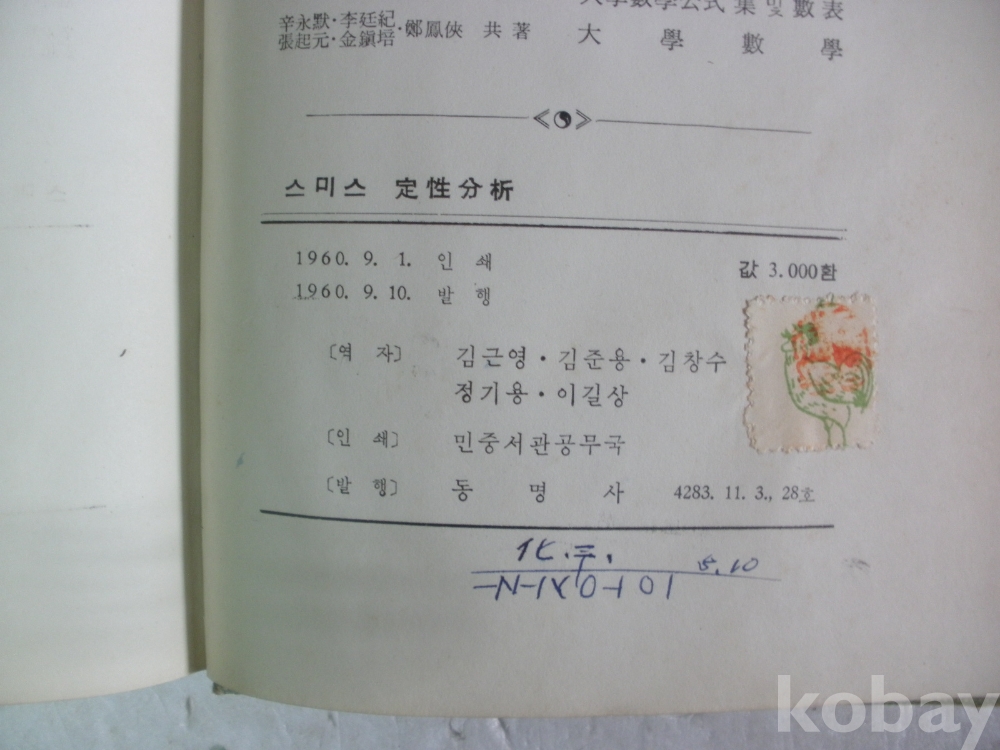 大學數學公式集 및 數表
辛永默·李廷紀·鄭鳳俠 共著 大學數學
張起元·金鎭培
스미스 定性分析
1960. 9. 1. 인 쇄 값 3.000환
1960. 9. 10. 발 행
〔역 자〕 김근영·김준용·김창수
정기용·이길상
〔인 쇄〕 민중서관공무국
〔발 행〕 동 명 사 4283. 11. 3., 28호
化.
5.10
kobay